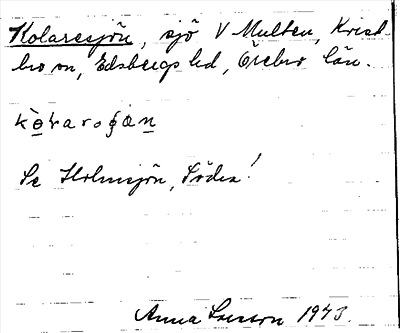 Kolaresjön, sjö V Multen, Krist-
bro sn, Edsbergs hd, Örebro län.
Se Holmsjön, Södra!
Anna Larsson 1973.